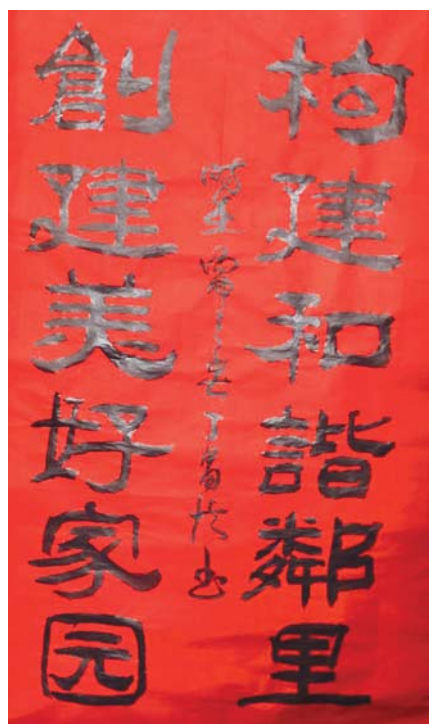 构建和諧鄰里
創建美好家园